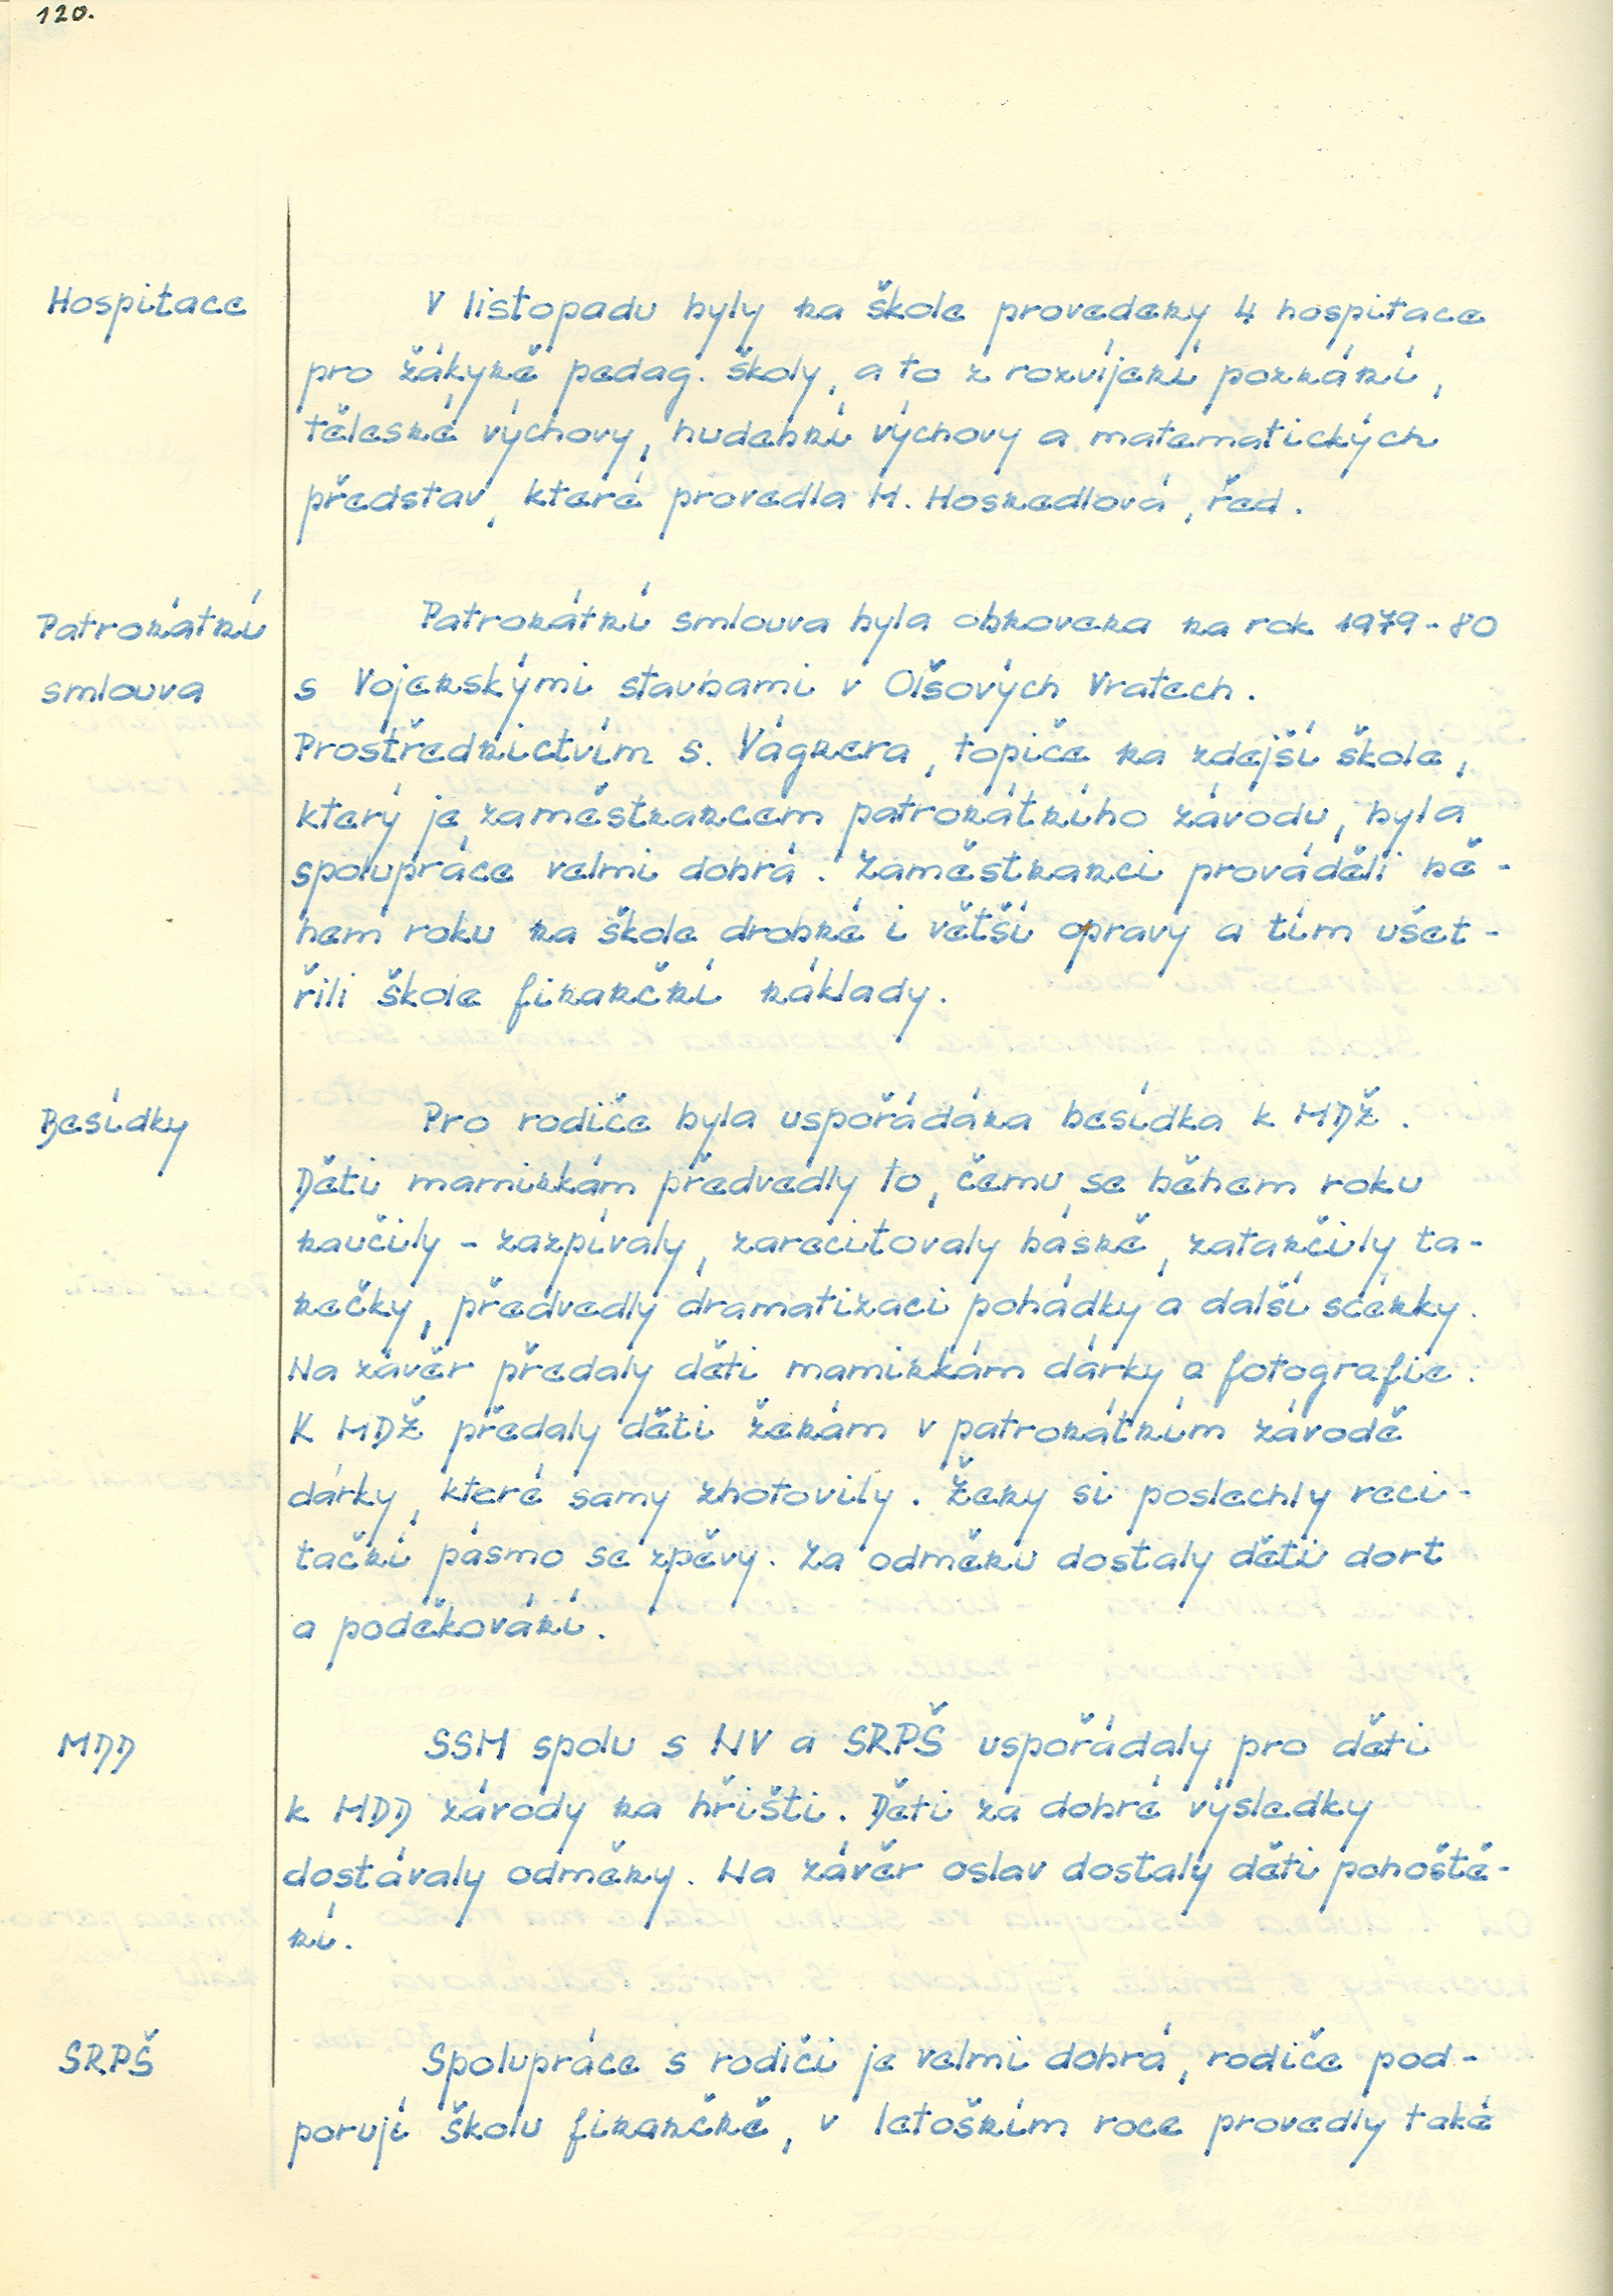 120.
Hospitace
V listopadu byly na škole provedeny 4 hospitace
pro žákyně pedag. školy, a to z rozvíjení poznání,
tělesné výchovy, hudební výchovy a matematických
představ, které provedla M. Hosnedlová, řed.
Patronátní
smlouva
Patronátní smlouva byla obnovena na rok 1979-80
s Vojenskými stavbami v Olšových Vratech.
Prostřednictvím s. Vágnera, topiče na zdejší škole,
který je zaměstnancem patronátního závodu, byla
spolupráce velmi dobrá. Zaměstnanci prováděli bě-
hem roku na škole drobné i větší opravy a tím ušet-
řili škole finanční náklady.
Besídky
Pro rodiče byla uspořádána besídka k MDŽ.
Děti maminkám předvedly to, čemu se během roku
naučily - zazpívaly, zarecitovaly básně, zatančily ta-
nečky, předvedly dramatizaci pohádky a další scénky.
Na závěr předaly děti maminkám dárky a fotografie.
K MDŽ předaly děti ženám v patronátním závodě
dárky, které samy zhotovily. Ženy si poslechly reci-
tační pásmo se zpěvy. Za odměnu dostaly děti dort
a poděkování.
MDD
SSM spolu s NV a SRPŠ uspořádaly pro děti
k MDD závody na hřišti. Děti za dobré výsledky
dostávaly odměny. Na závěr oslav dostaly děti pohoště-
ní.
SRPŠ
Spolupráce s rodiči je velmi dobrá, rodiče pod-
porují školu finančně, v letošním roce provedly také